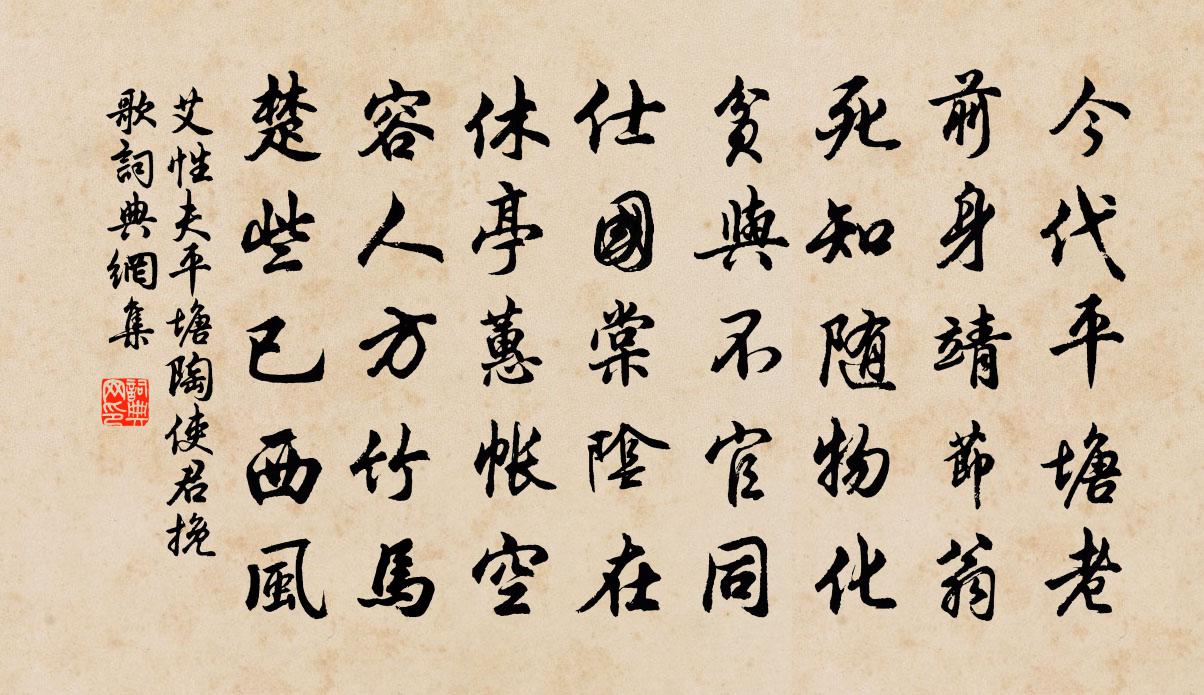 今代平塘老
前身靖節翁
死知随物化
貧與不官同
仕國棠陰在
休亭蕙帳空
容人方竹馬
楚些已西風
艾性夫平塘陶使君挽
歌詞典網集
詞典
网印